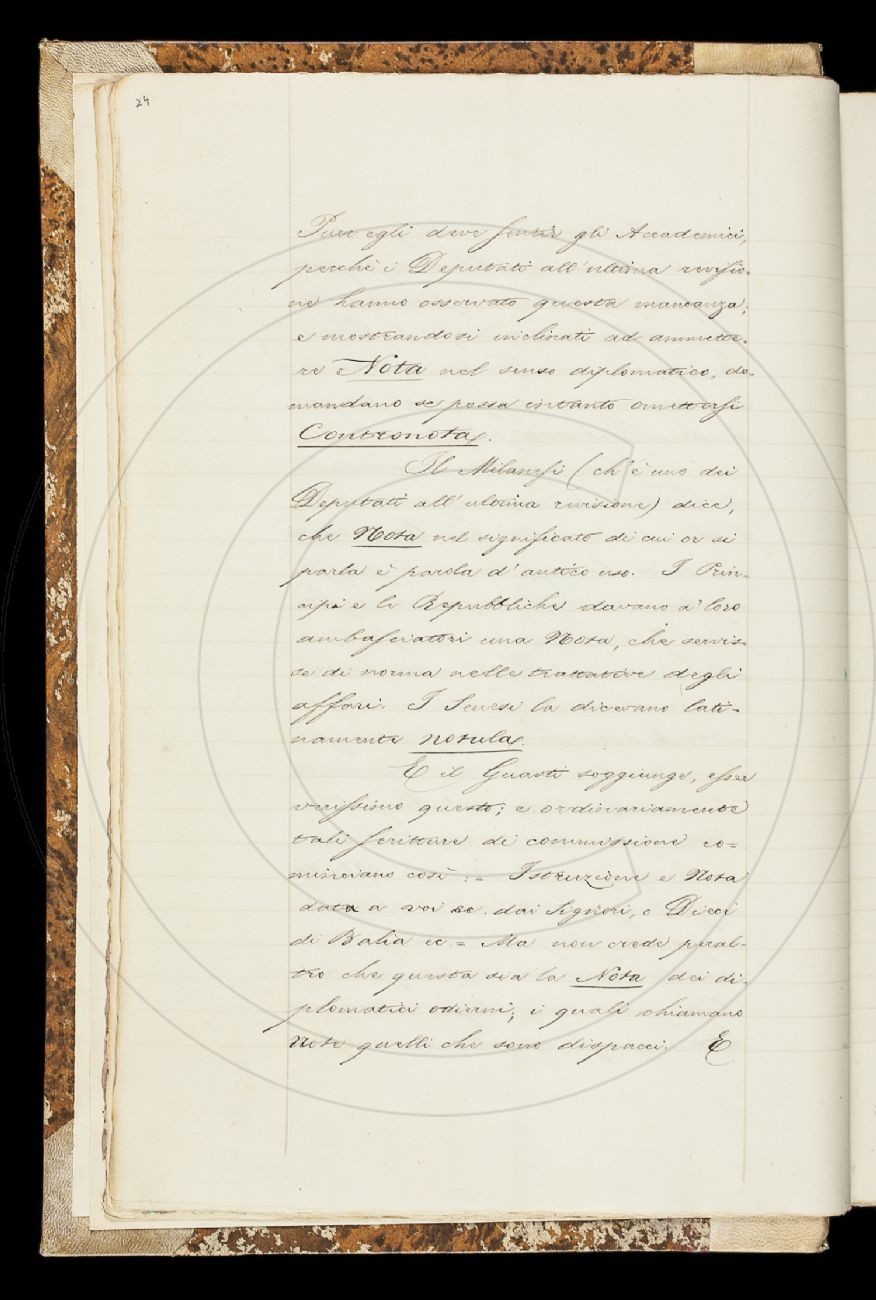 24
Pure egli deve sentir gli Accademici,
perchè i Deputati all'ultima revisio-
ne hanno osservato questa mancanza;
e mostrandosi inclinati ad ammette-
re Nota nel senso diplomatico, do-
mandano se possa intanto omettersi
Contronota.
Il Milanesi (ch'è uno dei
Deputati all'ultima revisione) dice,
che Nota nel significato di cui or si
parla è parola d'antico uso. I Prin-
cipi e le Repubbliche davano a' loro
ambasciatori una Nota, che servis-
se di norma nelle trattative degli
affari. I Senesi la dicevano lati-
namente notula.
E il Guasti soggiunge, esser
verissimo questo; e ordinariamente
tali scritture di commissione co=
minciano così := Istruzione e Nota
data a voi ec. dai Signori, o Dieci
di Balìa ec. = Ma non crede peral-
tro che questa sia la Nota dei di-
plomatici odierni; i quali chiamano
Note quelli che sono dispacci. E